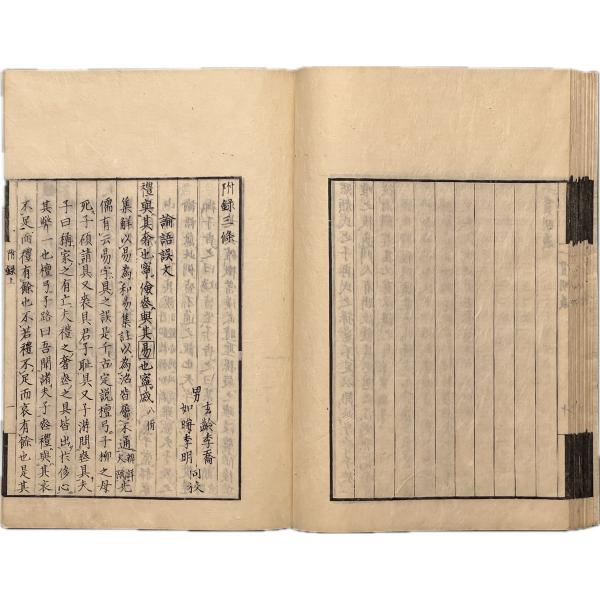 附錄三條
男 玄齡李喬
如晦李明 同校
論語誤文
禮與其奢也寧儉喪與其易也寧戚 八佾
集解以易為和易集註以為治皆厖不通 辨詳北大疏
儒有云易字具之誤是千古定說檀弓子柳之母
死子碩請具又喪具君子恥具又子游問喪具夫
子曰稱家之有亡夫禮之奢喪之具皆出於侈心
其弊一也檀弓子路曰吾聞諸夫子喪禮與其哀
不足而禮有餘也不若禮不足而哀有餘也是其
附錄上
一